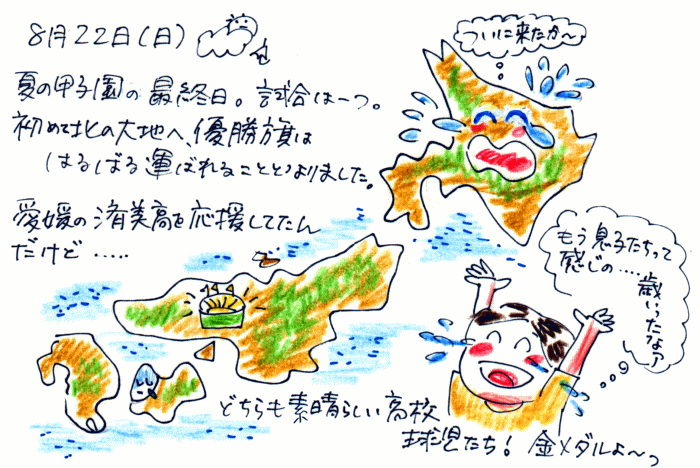 8月22日(日)
ついに来たか~
夏の甲子園の最終日。試合は一つ。
初めて北の大地へ、優勝旗は
はるばる運ばれることとよりました。
愛媛の済美高を応援してたん
だけど‥‥‥
もう息子たちって
感じの‥‥歳いったなァ
どちらも素晴らしい高校
球児たち! 金メダルよ~っ